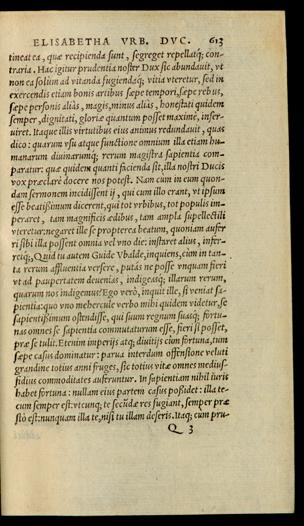 ELISABETHA VRB. DVC. 613
tineat ea, quæ recipienda sunt, segreget repellatq́; con-
traria. Hac igitur prudentia noster Dux sic abundauit, vt
non ea solùm ad vitanda fugiendaq́; vitia vteretur, sed in
exercendis etiam bonis artibus sæpe tempori, sæpe rebus,
sæpe personis aliàs, magis, minus aliàs, honestati quidem
semper, dignitati, gloriæ quantum posset maximè, inser-
uiret. Itaque illis virtutibus eius animus redundauit, quas
dico: quarum vsu atque functione omnium illa etiam hu-
manarum diuinarumq́; rerum magistra sapientia com-
paratur: quæ quidem quanti facienda sit, illa nostri Ducis
vox præclarè docere nos potest. Nam cum in eum quon-
dam sermonem incidissent ij, qui cum illo erant, vt ipsum
esse beatissimum dicerent, qui tot vrbibus, tot populis im-
peraret, tam magnificis ædibus, tam ampla supellectili
vteretur: negaret ille se propterea beatum, quoniam aufer
ri sibi illa possent omnia vel vno die: instaret alius, infer-
retq́;, Quid tu autem Guide Vbalde, inquiens, cùm in tan-
ta rerum affluentia versere, putás ne posse vnquam fieri
vt ad paupertatem deuenias, indigeasq́; illarum rerum,
quarum nos indigemus? Ego verò, inquit ille, si veniat sa-
pientia: quo vno mehercule verbo mihi quidem videtur, se
sapientissimum ostendisse, qui suum regnum suasq́; fortu-
nas omnes se sapientia commutaturum esse, fieri si posset,
præ se tulit. Etenim imperijs atq; diuitijs cùm fortuna, tum
sæpe casus dominatur: parua interdum offensione veluti
grandine totius anni fruges, sic totius vitæ omnes medius-
fidius commoditates auferuntur. In sapientiam nihil iuris
habet fortuna: nullam eius partem casus possidet: illa te-
cum semper est: vtcunq; te secũdæ res fugiant, semper præ
stò est: nunquam illa te, nisi tu illam deseris. Itaq; cum pru-
Q 3